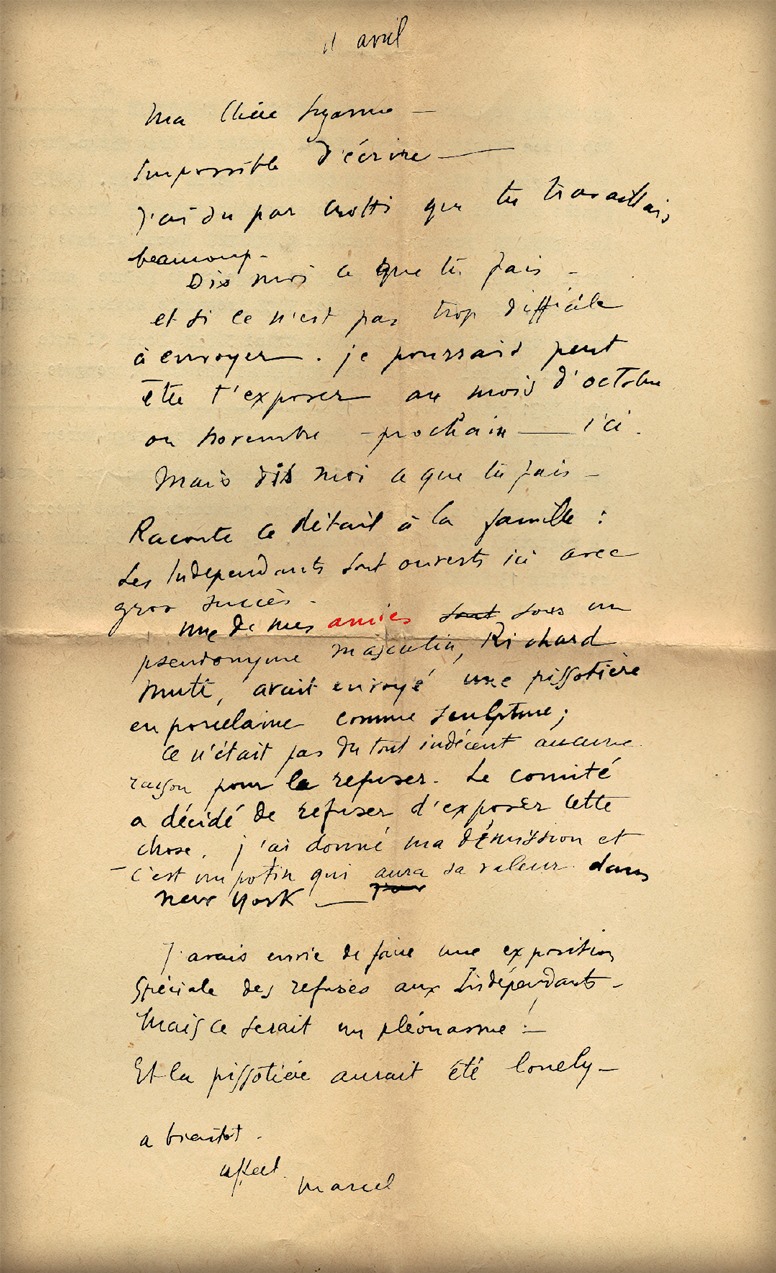 11 avril
Ma Chère Suzanne —
Impossible d'écrire —
J'ai su par Crotti que tu travaillais
beaucoup.
Dis moi ce que tu fais —
et si ce n'est pas trop difficile
à envoyer. je pourrais peut
être t'exposer au mois d'octobre
ou novembre – prochain — ici.
Mais dis moi ce que tu fais —
Raconte ce détail à la famille :
Les Indépendants sont ouverts ici avec
gros succès.
Une de mes amies sont sous un
pseudonyme masculin, Richard
Mutt, avait envoyé une pissotière
en porcelaine comme sculpture ;
Ce n'était pas du tout indécent aucune
raison pour la refuser. Le comité
a décidé de refuser d'exposer cette
chose. j'ai donné ma démission et
– c'est un potin qui aura sa valeur dans
New York —
J'avais envie de faire une exposition
spéciale des refusés aux Indépendants —
Mais ce serait un pléonasme ! —
Et la pissotière aurait été lonely —
a bientôt.
affect.
Marcel